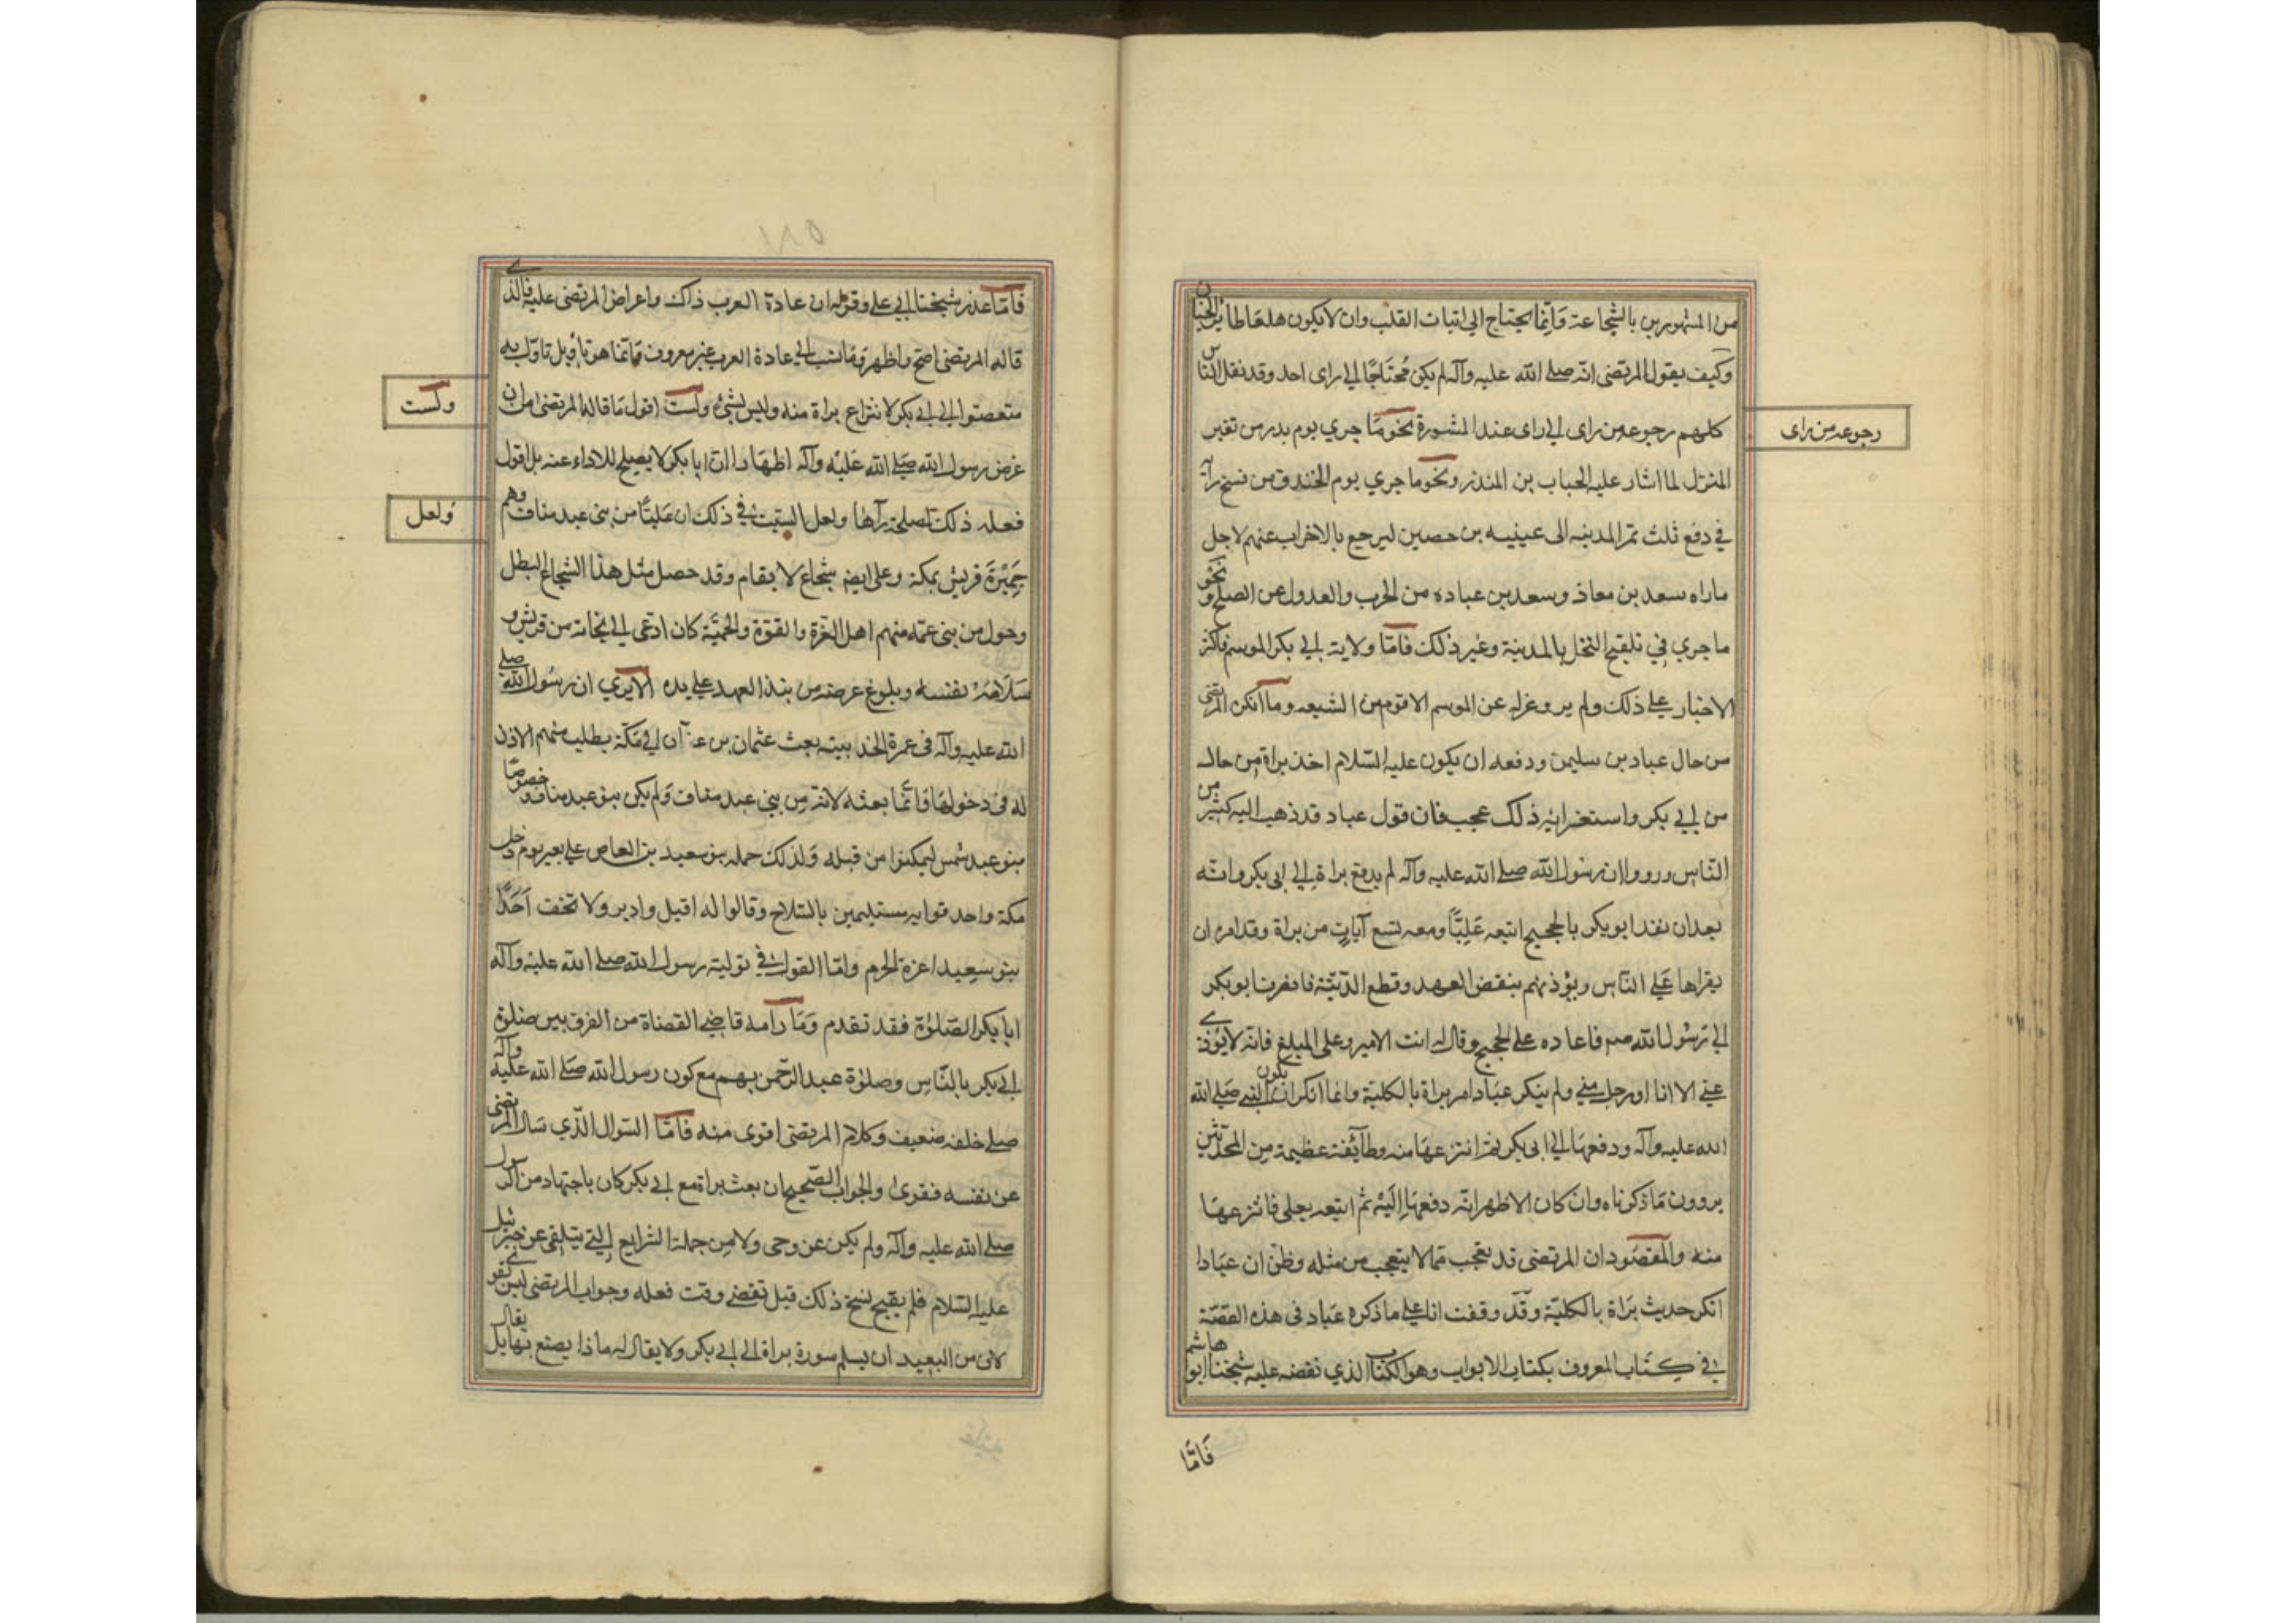 من المشهورين بالشجاعة وانما يحتاج الي اثبات القلب وان لا يكون هلعا طائر الجنان
وكيف يقول المرتضى انه صلے الله عليه وآله لم يكن محتاجا الي راى احد وقد نقل الناس
كلهم رجوعه من راى الي راى عند المشورة نحو ما جري يوم بدر من تغير
المنزل لما اشار عليه الحباب بن المنذر ونحو ما جري يوم الخندق من فسخ رآيه
في دفع ثلث تمر المدينه الى عيينه بن حصين ليرجع بالاحزاب عنهم لاجل
ماراه سعد بن معاذ وسعد بن عباده من الحرب والعدول عن الصلح ونحو
ما جري في تلقيح النخل بالمدينة وغير ذلك فاما ولاية ابي بكر الموسم فاكثر
الاخبار علي ذلك ولم يرو عزله عن الموسم الا قوم من الشيعه وما انكره المرتضى
من حال عباد بن سليمن ودفعه ان يكون عليه السلام اخذ براة من حال
من ابي بكر واستغرابه ذلك عجب فان قول عباد قد ذهب اليه كثير من
الناس ورووا ان رسول الله صلے الله عليه وآله لم يدفع براة الي ابى بكر وانه
بعد ان نفذ ابو بكر بالحجيج اتبعه عليا ومعه تسع آيات من براة وقد امره ان
يقراها علي الناس ويؤذنهم بنقض العهد وقطع الدنية فانصرف ابو بكر
الي رسول الله صم فاعاده علي الحجيج وقال له انت الامير وعلي المبلغ فانه لا يؤذي
عني الا انا او رجل مني ولم ينكر عباد امر براة بالكلية وانما انكر ان يكون النبي صلے الله
الله عليه وآله ودفعها الي ابى بكر ثم انتزعها منه وطآئفة عظيمة من المحدثين
يروون ما ذكرناه وان كان الاظهر انه دفعها اليه ثم اتبعه بعلي فانتزعها
منه والمقصود ان المرتضى قد تعجب مما لا يتعجب من مثله وظن ان عبادا
انكر حديث براة بالكلية وقد وقفت انا علي ما ذكره عباد فى هذه القصة
في كتابه المعروف بكتاب الابواب وهو الكتاب الذي نقضه عليه شيخنا ابو هاشم
فاما
رجوعه من راى
٥٨١
فاما عذر شيخنا ابي علي وقوله ان عادة العرب ذلك واعراض المرتضى عليه فالذي
قاله المرتضى اصح واظهر وما نسب الي عادة العرب غير معروف وانما هو تاويل تاول به
متعصبوا الي ابي بكر لانتزاع براة منه وليس بشيء ولست اقول ما قاله المرتضى من ان
غرض رسول الله صلے الله عليه وآله اظهار ان ابا بكر لا يصلح للاداء عنه بل اقول
فعله ذلك لمصلحة رآها ولعل السبب في ذلك ان عليا من بنى عبد مناف وهم
جمرة قريش بمكة وعلي ايضا شجاع لا يقام وقد حصل مثل هذا الشجاع البطل
وحول من بنى عمه منهم اهل العزة والقوة والحمية كان ادعى الي نجاته من قريش و
سلامة نفسه وبلوغ غرضه من نبذ العهد علي يده الا يري ان رسول الله صلے
الله عليه وآله فى عمرة الحديبيه بعث عثمان بن عفان الي مكة يطلب منهم الاذن
له فى دخولها وانما بعثه لانه من بني عبد مناف ولم يكن بنو عبد مناف وخصوصا
بنو عبد شمس ليمكنوا من قبله ولذلك حمله بنو سعيد بن العاص علي بعير يوم دخل
مكة واحدقوا به مستليمين بالسلاح وقالوا له اقبل وادبر ولا تخف احدا
بنو سعيد اعزة الحرم واما القول في تولية رسول الله صلے الله عليه وآله
ابا بكر الصلوة فقد تقدم وما رامه قاضي القضاة من الفرق بين صلوة
ابي بكر بالناس وصلوة عبد الرحمن بهم مع كون رسول الله صلے الله عليه وآله
صلے خلفه ضعيف وكلام المرتضى اقوى منه فاما السوال الذي سال المرتضى
عن نفسه فقوى والجواب الصحيح ان بعث براة مع ابي بكر كان باجتهاد من الرسول
صلے الله عليه وآله ولم يكن عن وحى ولا من جملة الشرايع التي يتلقى عن جبرئيل
عليه السلام فلم يقبح نسخ ذلك قبل تقضي وقت فعله وجواب المرتضى ليس بقوي
لانه من البعيد ان يسلم سورة براة الي ابي بكر ولا يقال له ماذا يصنع بها بل يقال
ولست
ولعل